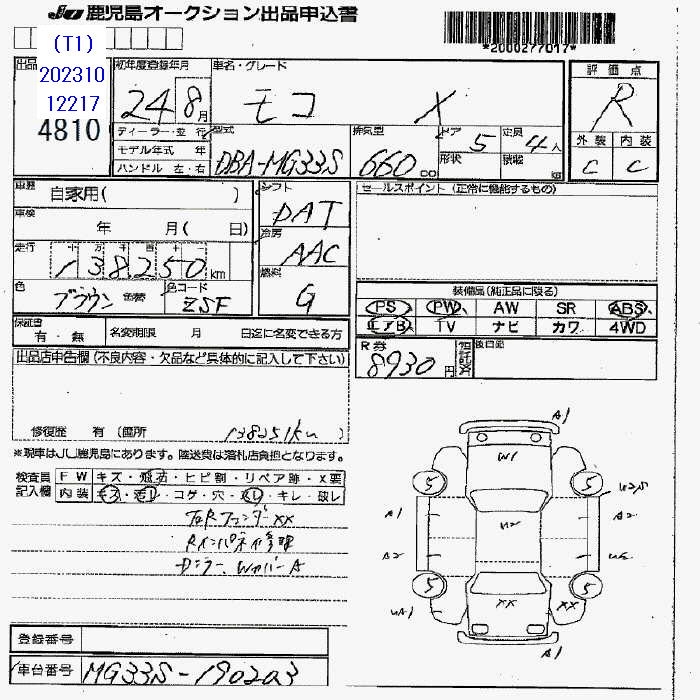 JU 鹿児島オークション出品申込書
*2000277017*
(T1)
202310
12217
4810
出品
初年度登録年月
24 8月
車名・グレード
モコ X
評価点
R
外装 内装
C C
ディーラー・並行
モデル年式 年
ハンドル 左・右
型式
DBA-MG33S
排気量
660 cc
ドア 5
形状
定員 4人
積載 kg
車歴 自家用( )
車検 年 月( 日)
走行 十 万 千 百 十
138,250 km
色 ブラウン 色替
色コード ZSF
シフト DAT
冷房 AAC
燃料 G
セールスポイント(正常に機能するもの)
装備品(純正品に限る)
PS PW AW SR ABS
エアB TV ナビ カワ 4WD
保証書 有・無
名変期限 月 日迄に名変できる方
R券 8930円
後日品
出品店申告欄(不良内容・欠品など具体的に記入して下さい)
修復歴 有(箇所 138251km)
※現車はJU鹿児島にあります。陸送費は落札店負担となります。
検査員記入欄
FW キズ・飛石・ヒビ割・リペア跡・X要
内装 キズ・汚レ・コゲ・穴・スレ・キレ・破レ
右Rフェンダー XX
Rインパネ修理
Dミラー、WカバーA
A1
W1
5 5
U2,5
A1 A2
U2
A2
5 5
UA1
XX XX
A1
登録番号
車台番号 MG33S-190203